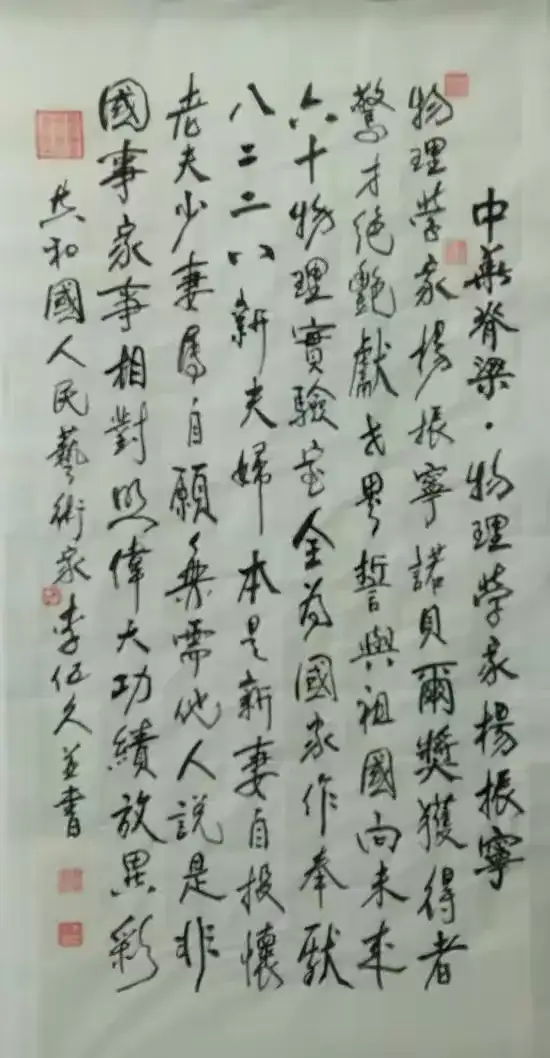 中華脊梁·物理學家楊振寧
物理學家楊振寧諾貝爾獎獲得者
驚才絕艷獻世界誓與祖國向未來
六十物理實驗室全為國家作奉獻
八二二八新夫婦本是新妻自投懷
老夫少妻屬自願無需他人說是非
國事家事相對照偉大功績放異彩
共和國人民藝術家李伍久並書